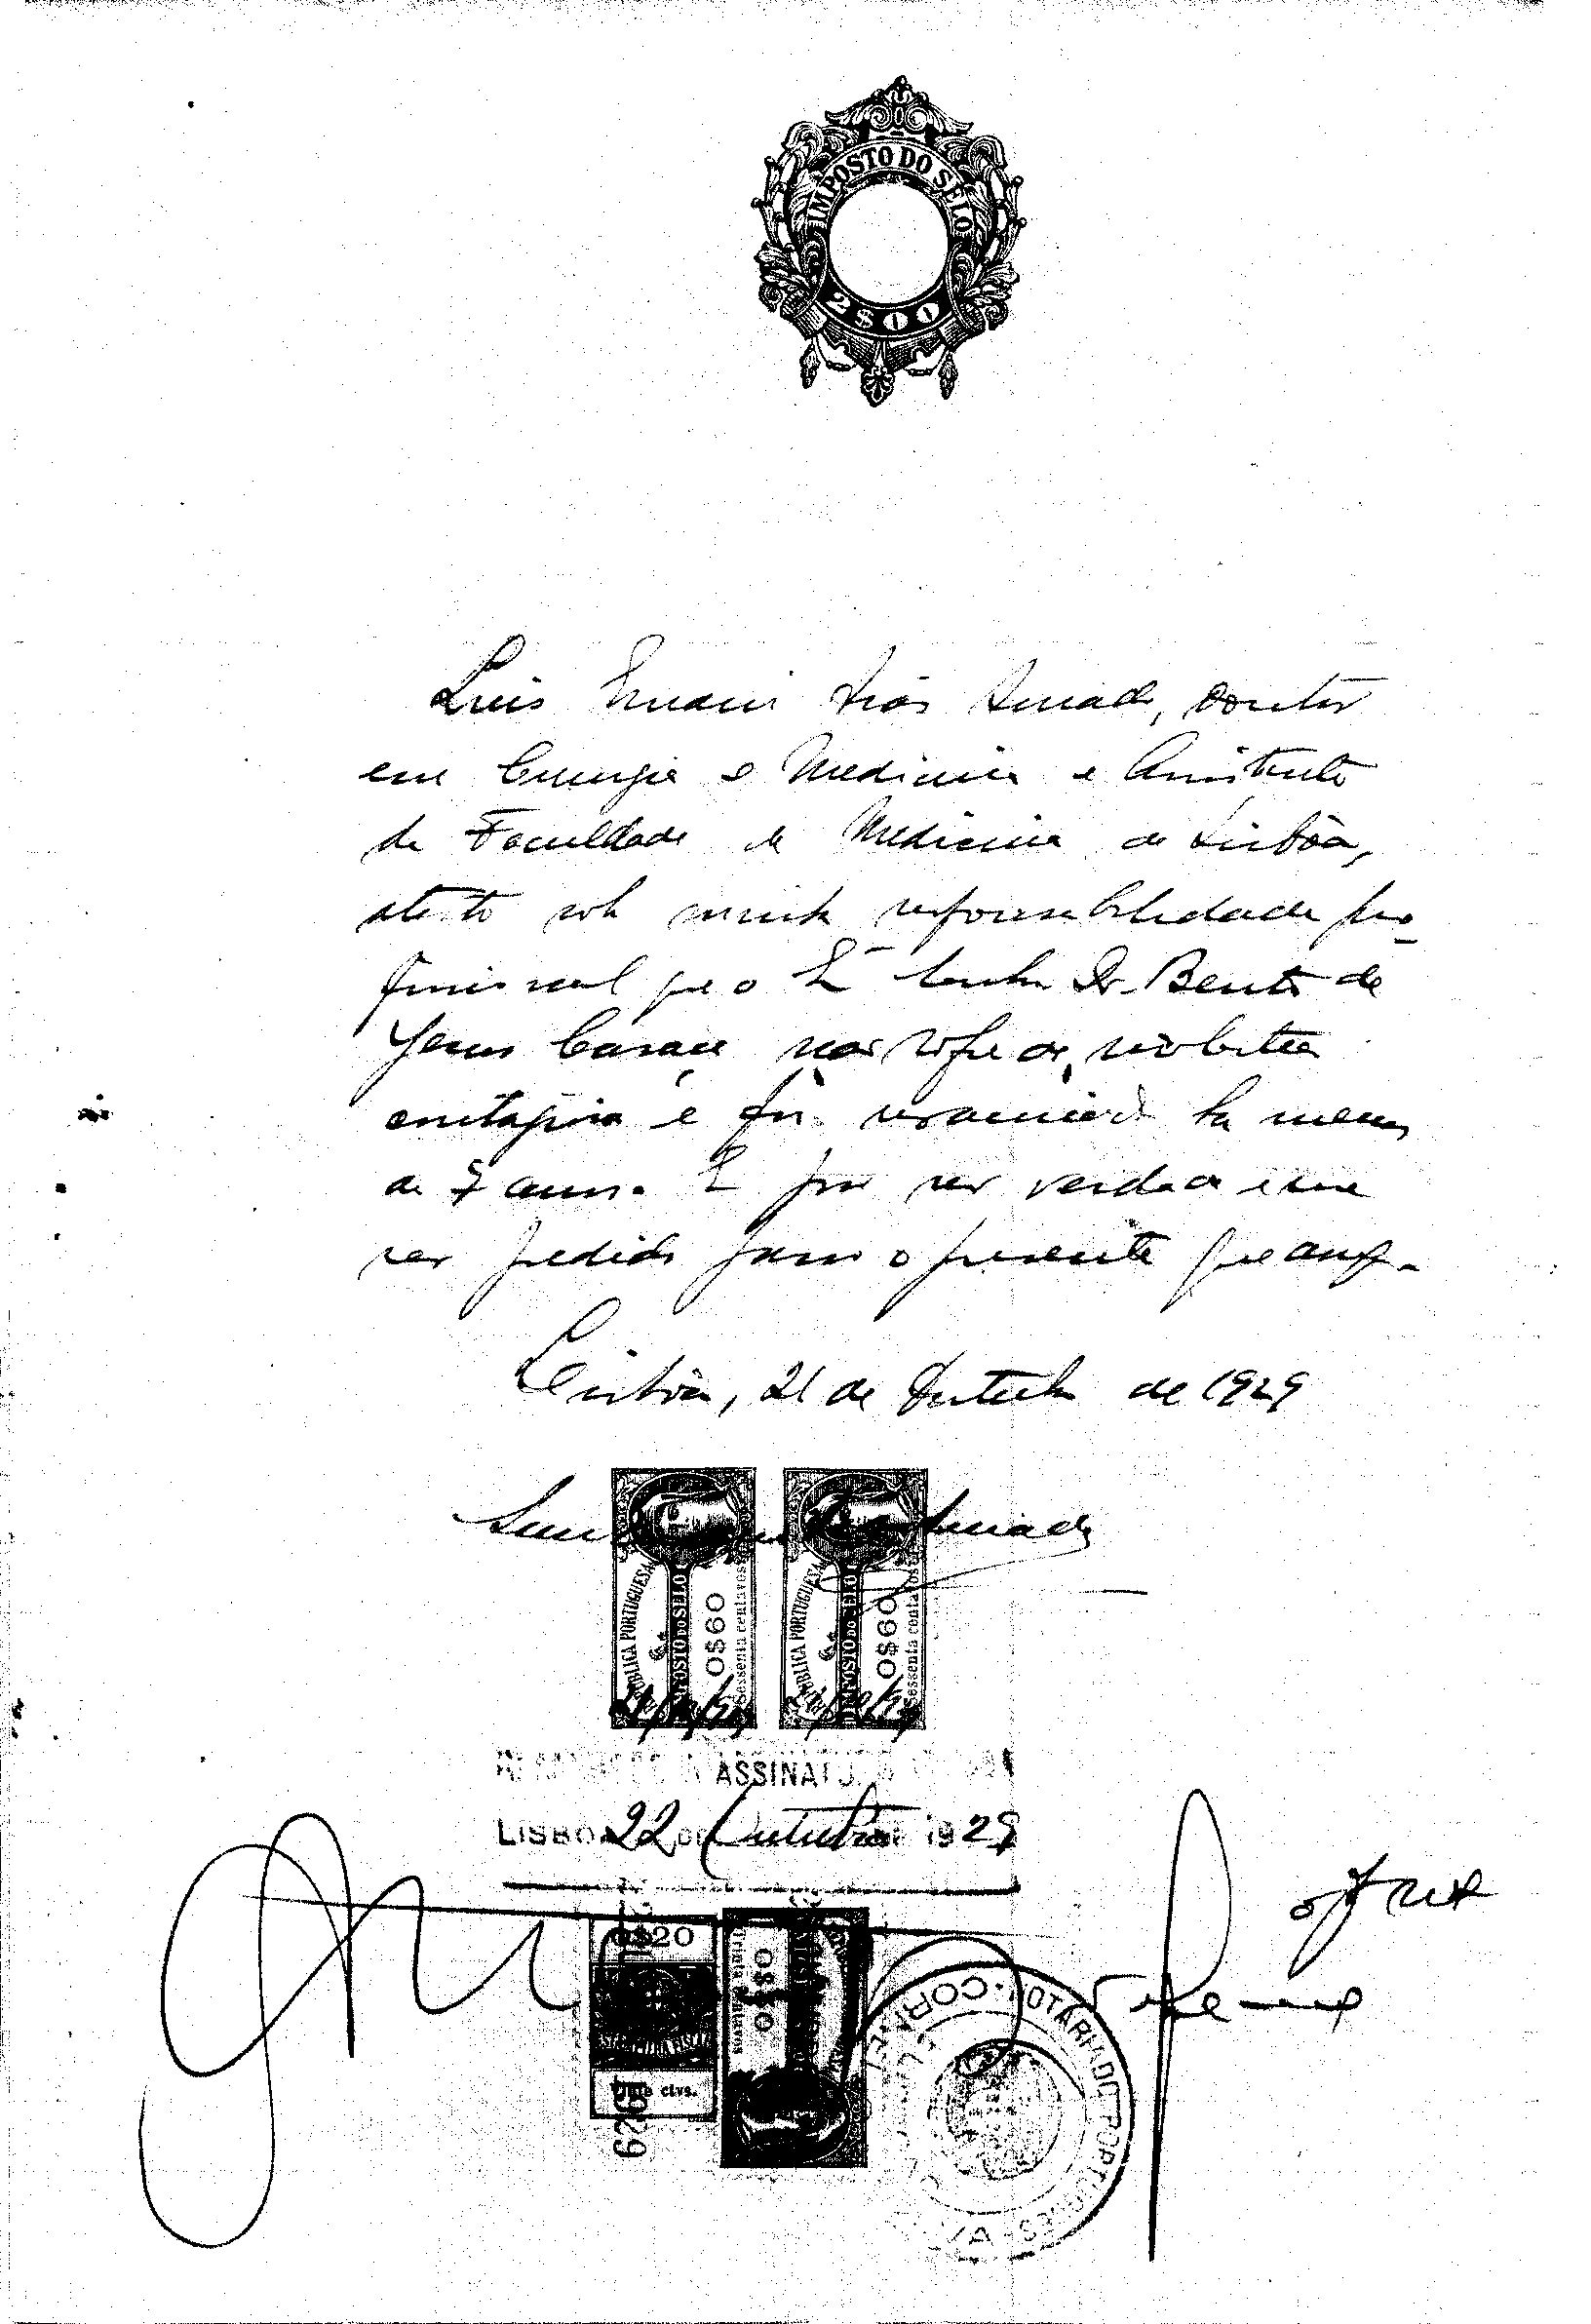 IMPOSTO DO SELO
2$00
Luis Ernani Dias Amado, Doutor
em Cirurgia e Medicina e Assistente
da Faculdade de Medicina de Lisbôa,
atesto sob minha responsabilidade pro-
fissional que o Dr. Bento de
Jesus Caraça não sofre de molestia
contagiosa e foi revacinado ha menos
de 7 anos. E por ser verdade e me
ser pedido passo o presente que assino.
Lisbôa, 21 de Outubro de 1929
Luis Ernani Dias Amado
REPUBLICA PORTUGUESA
IMPOSTO DO SELO
0$60
sessenta centavos
REPUBLICA PORTUGUESA
IMPOSTO DO SELO
0$60
sessenta centavos
ASSINATURA
LISBOA 22 DE Outubro DE 1929
0$20
ctvs.
1929
NOTARIADO PORTUGUES